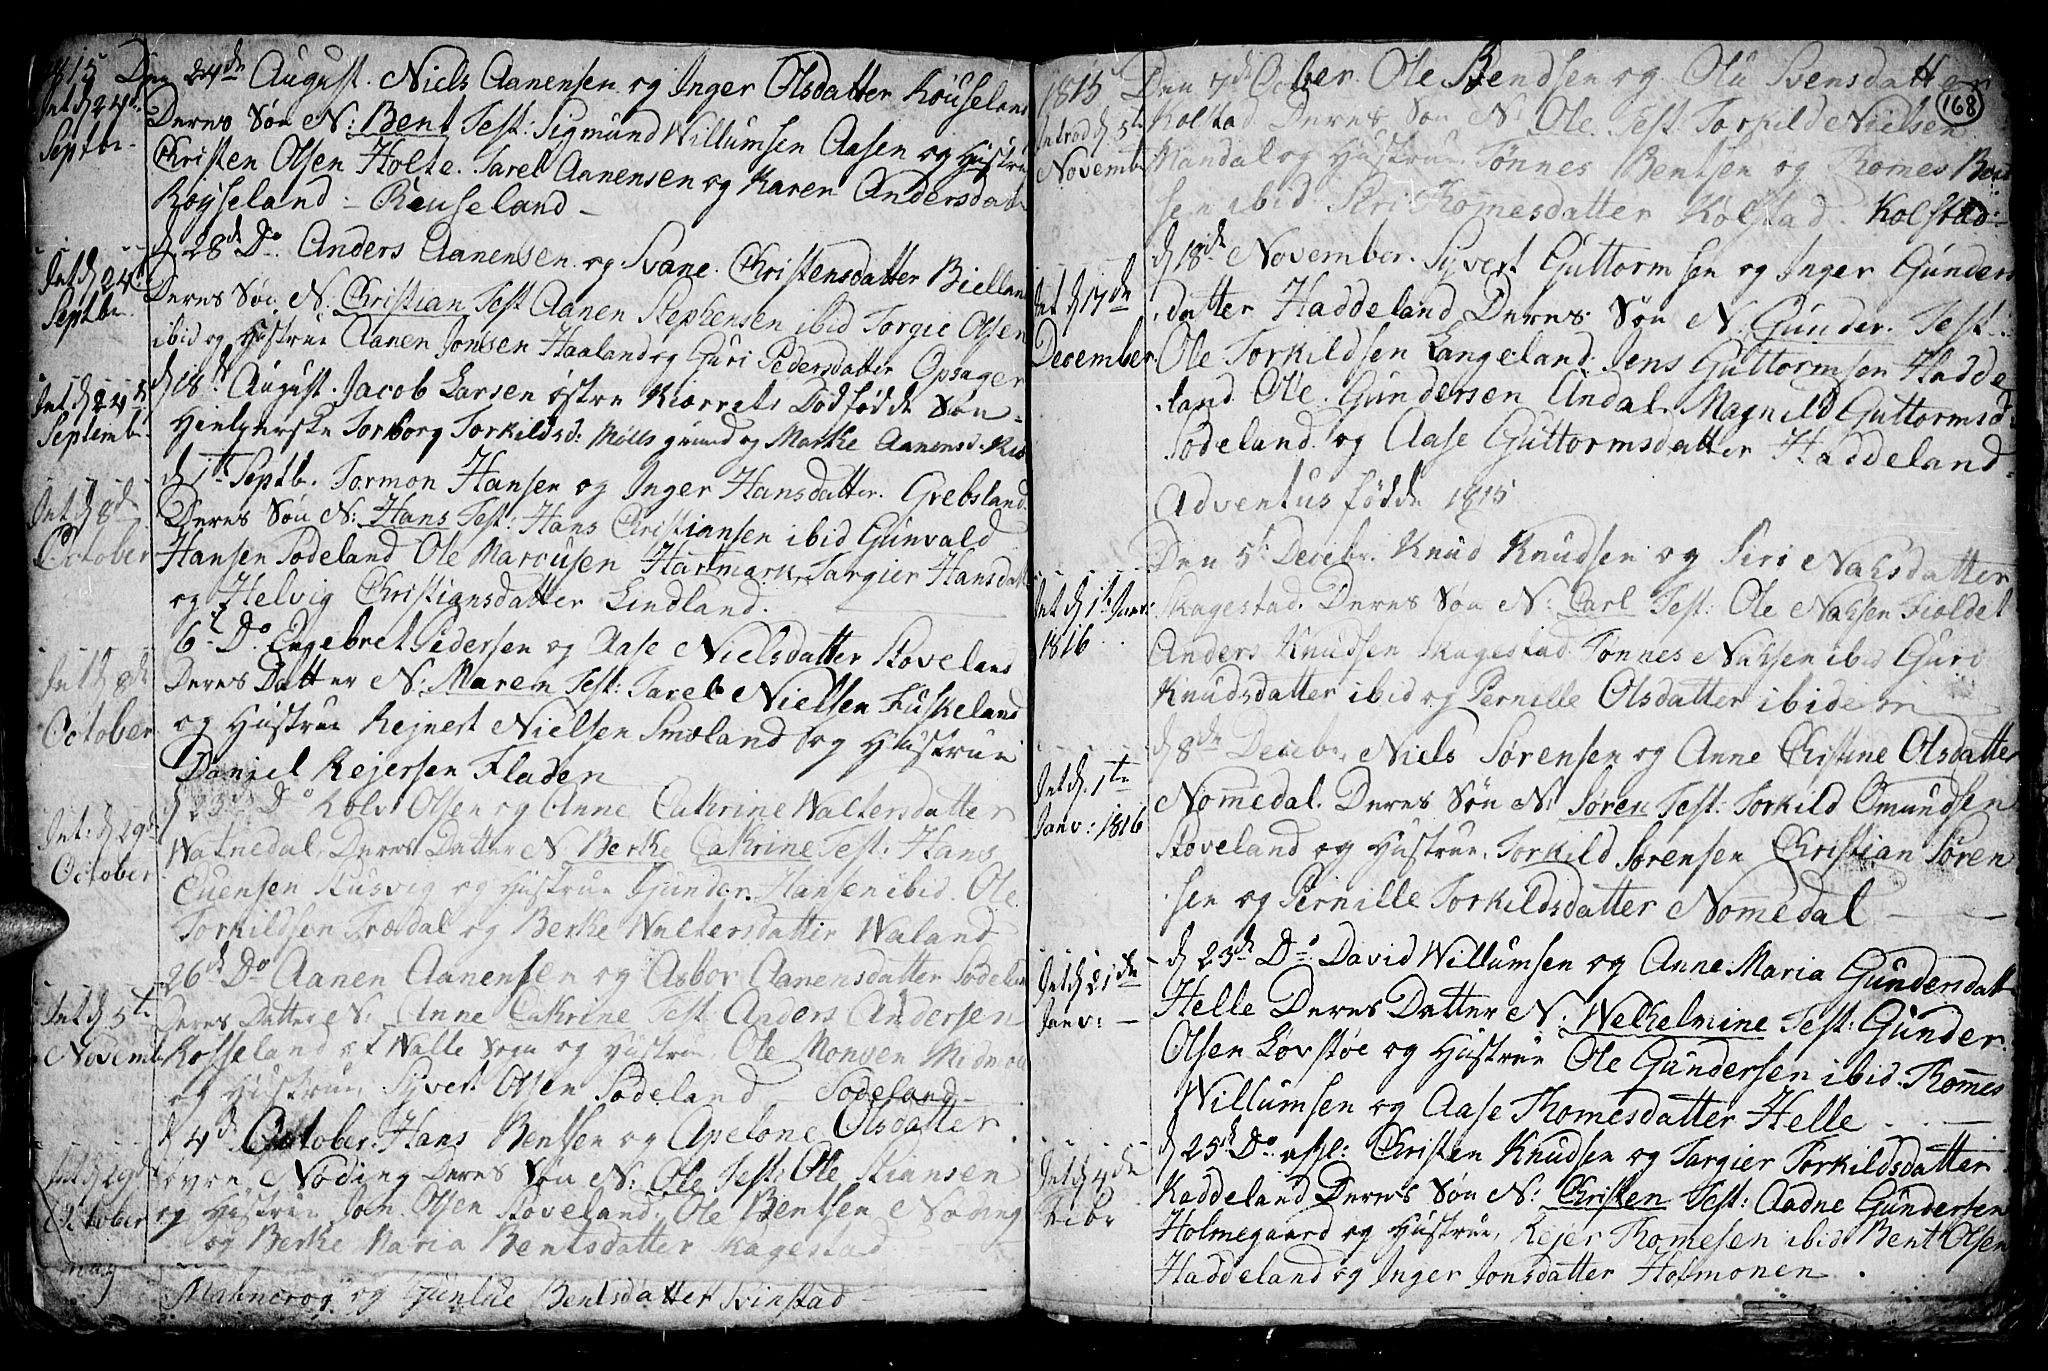 1815 Den 24de August. Niels Aanensen og Inger Olsdatter Røuseland
Int d 24de Septbr. Deres Søn N: Bent Test: Sigmund Willumsen Aasen og Hustrue
Christen Olsen Holte. Tarel Aanensen og Karen Andersdatt
Røyseland - Røuseland -
d 28de Do. Anders Aanensen og Svane Christensdatter Bielland
Int d 24de Septbr. Deres Søn N. Christian Test Aanen Stephensen ibid Torgie Olsen
ibid og Hustrue Aanen Jonsen Haaland og Guri Pedersdatter Opsager
Int d 24de Septemb. d 18de August. Jacob Larsen østre Kiærrets Dødfødde Søn
Hielperske Torborg Torkildsd: Mølls grund og Marthe Aanensd.
d 1te Septb. Tormon Hansen og Inger Hansdatter. Grebsland
Int d 8de October Deres Søn N: Hans Test: Hans Christiansen ibid Gunvald
Hansen Sodeland Ole Marcusen Hartmark, Targier Hansdatt
og Helvig Christiansdatter Lindland.
6te Do. Engebret Pedersen og Aase Nielsdatter Stoveland
Int d 8de October Deres Datter N: Maren Test: Tarel Nielsen Fuskeland
og Hustrue Rejnert Nielsen Smæland og Hustrue
Daniel Rejersen Fladen
d 23de Do Lolv Olsen og Anne Cathrine Waltersdatter
Int: d 29de October Watnedal, Deres Datter N Berthe Cathrine Test: Hans
Evensen Stusvig og Hustrue Gunder Hansen ibid. Ole
Torkildsen Trædal og Berthe Waltersdatter Waland
26de Do Aanen Aanensen og Asbor Aanensdatter Sodeland
Int d 5te Novemb. Deres Datter N: Anne Cathrine Test: Anders Andersen
Kosseland af Halle Sogn og Hustrue, Ole Monsen
og Hustrue, Syvert Olsen Sodeland - Sodeland -
d 4de October. Hans Bentsen og Apelone Olsdatter
Int d 29de October øvre Nøding Deres Søn N: Ole Test: Ole Stiansen
og Hustrue Jon Olsen Stoveland, Ole Bentsen Nøding
og Berthe Maria Bentsdatter Skagestad
og Gunlue Bentsdatter Svinstad
168
1815 Den 7de October. Ole Bendsen og Olu Svensdatter
Introd d 5te Novemb Kolstad. Deres Søn N: Ole Test: Torkild Nielsen
Mandal og Hustrue, Tønnes Bentsen og Thomes Bend
sen ibid Siri Thomesdatter Kolstad. Kolstad -
d 18de November. Syvert Guttormsen og Inger Gunders
Int d 17de December datter Haddeland Deres Søn N. Gunder. Test.
Ole Torkildsen Langeland. Jens Guttormsen Hadde
land Ole Gundersen Andal. Magnild Guttormsd:
Sodeland og Aase Guttormsdatter Haddeland
Adventus fødde 1815
Den 5te Decebr. Knud Knudsen og Siri Nahsdatter
Int d 1te Janr: 1816 Skagestad. Deres Søn N: Carl Test: Ole Natsen Fioldet
Anders Knudsen Skagestad Tønnes Natsen ibid Guri
Knudsdatter ibid og Pernille Olsdatter ibidem
d 8de Decebr. Niels Sørensen og Anne Christine Olsdatter
Int d. 1te Janv: 1816 Nomedal. Deres Søn N: Søren Test: Torkild Omundsen
Stoveland og Hustrue, Torkild Sørensen Christian Søren
sen og Pernille Torkildsdatter Nomedal -
d 23de Do. David Willumsen og Anne Maria Gundersdatt
Int d 21de Janv: - Helle Deres Datter N. Welhelmine Test: Gunder
Olsen Lovstøe og Hustrue Ole Gundersen ibid. Thomes
Willumsen og Aase Thomesdatter Helle
d 25de Do. Christen Knudsen og Targier Torkildsdatter
Int d 4de Febr Haddeland Deres Søn N: Christen Test: Aadne Gundersen
Holmegaard og Hustrue, Rejer Thomesen ibid Bent Olsen
Haddeland og Inger Jonsdatter Holmonen